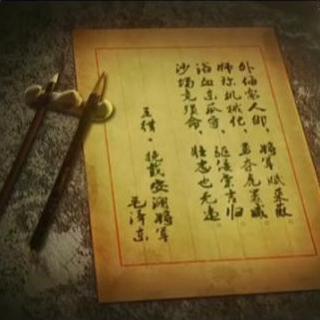 外侮需人御，将军赋采薇
师称机械化，勇夺虎罴威
浴血东瓜守，驱倭棠吉归
沙场竟殒命，壮志也无违
五律·挽戴安澜将军
毛泽东